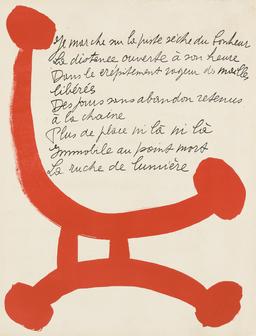 Je marche sur la piste sèche du bonheur
La distance ouverte à son heure
Dans le crépitement rageur de mailles
libérés
Des jours sans abandon retenus
à la chaîne
Plus de place ni là ni là
Immobile au point mort
La ruche de lumière